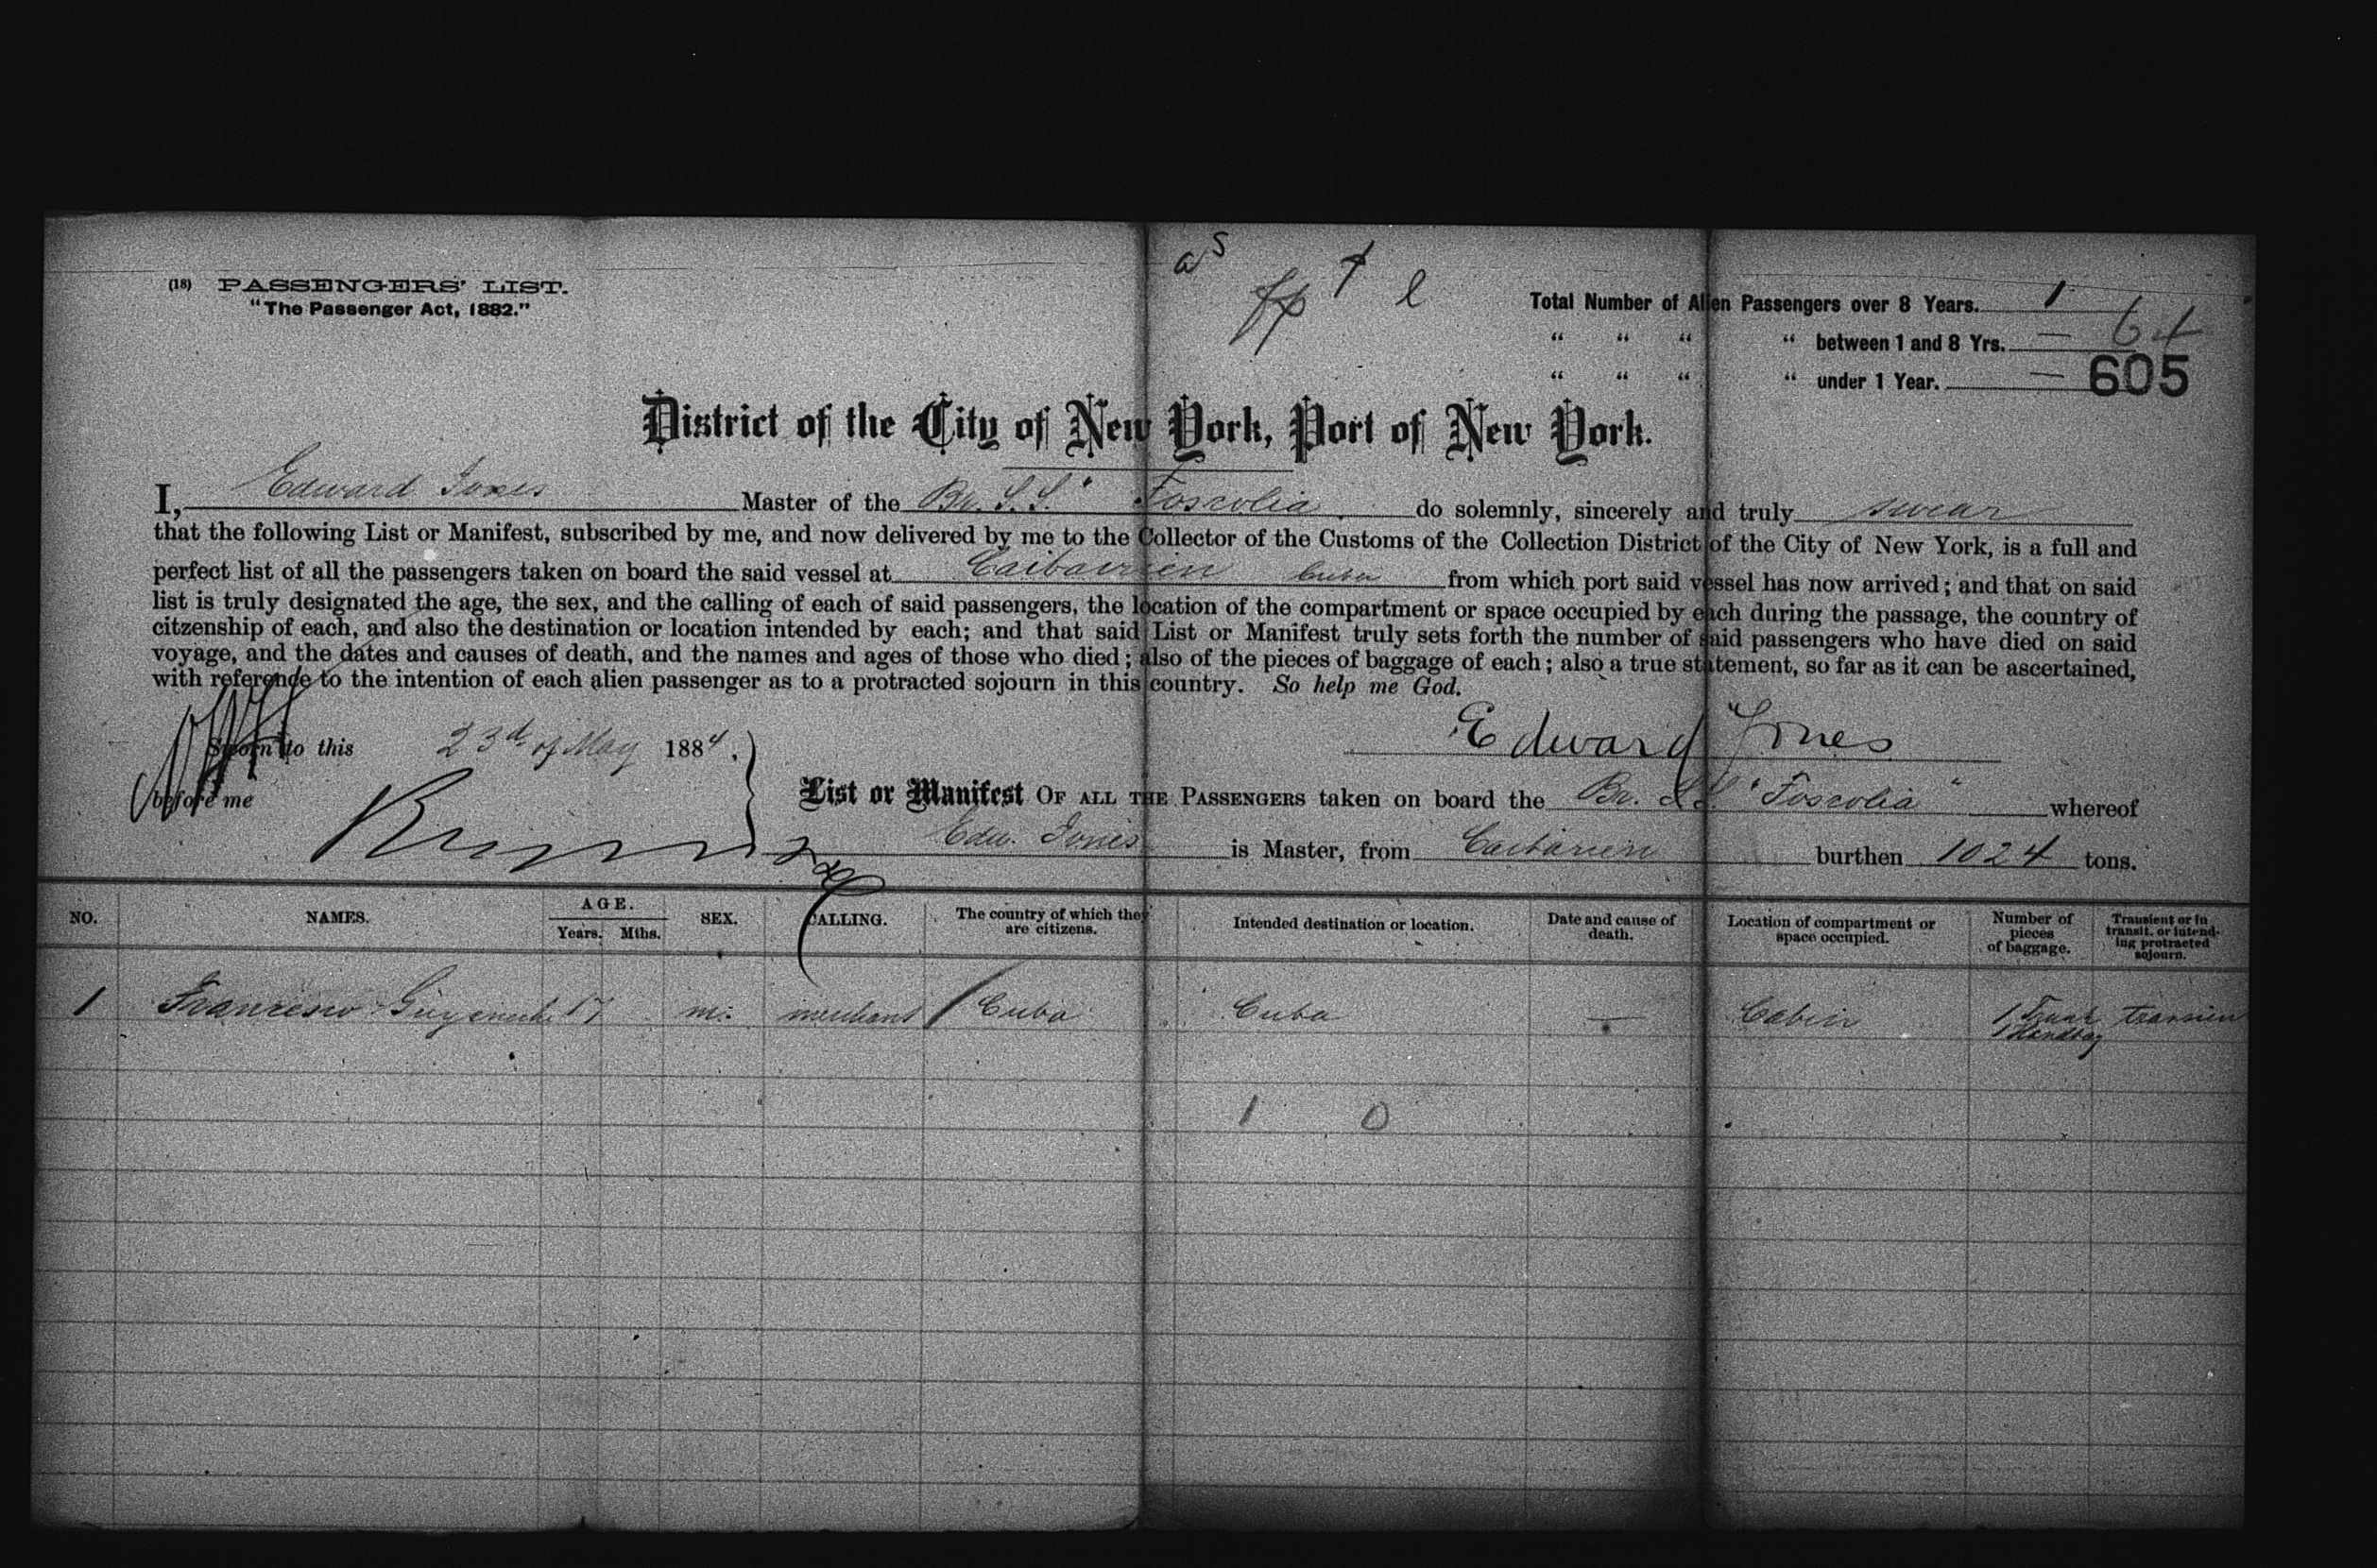 as
fp 1 l
(18) PASSENGERS' LIST.
"The Passenger Act, 1882."
Total Number of Alien Passengers over 8 Years. 1
" " " " between 1 and 8 Yrs. — 64
" " " " under 1 Year. — 605
District of the City of New York, Port of New York.
I, Edward Jones Master of the Br. S.S. " Foscolia do solemnly, sincerely and truly swear
that the following List or Manifest, subscribed by me, and now delivered by me to the Collector of the Customs of the Collection District of the City of New York, is a full and
perfect list of all the passengers taken on board the said vessel at Caibarien Cuba from which port said vessel has now arrived; and that on said
list is truly designated the age, the sex, and the calling of each of said passengers, the location of the compartment or space occupied by each during the passage, the country of
citzenship of each, and also the destination or location intended by each; and that said List or Manifest truly sets forth the number of said passengers who have died on said
voyage, and the dates and causes of death, and the names and ages of those who died; also of the pieces of baggage of each; also a true statement, so far as it can be ascertained,
with reference to the intention of each alien passenger as to a protracted sojourn in this country. So help me God.
Sworn to this 23d of May 1884.
Edward Jones
before me
List or Manifest OF ALL THE PASSENGERS taken on board the Br. S.S. "Foscolia" whereof
Edw. Jones is Master, from Caibarien burthen 1024 tons.
NO. NAMES. AGE. Years. Mths. SEX. CALLING. The country of which they are citizens. Intended destination or location. Date and cause of death. Location of compartment or space occupied. Number of pieces of baggage. Transient or in transit, or intending protracted sojourn.
1 Francesco m. merchant Cuba Cuba — Cabin 1 Trunk transien
1 Handbag
1 0